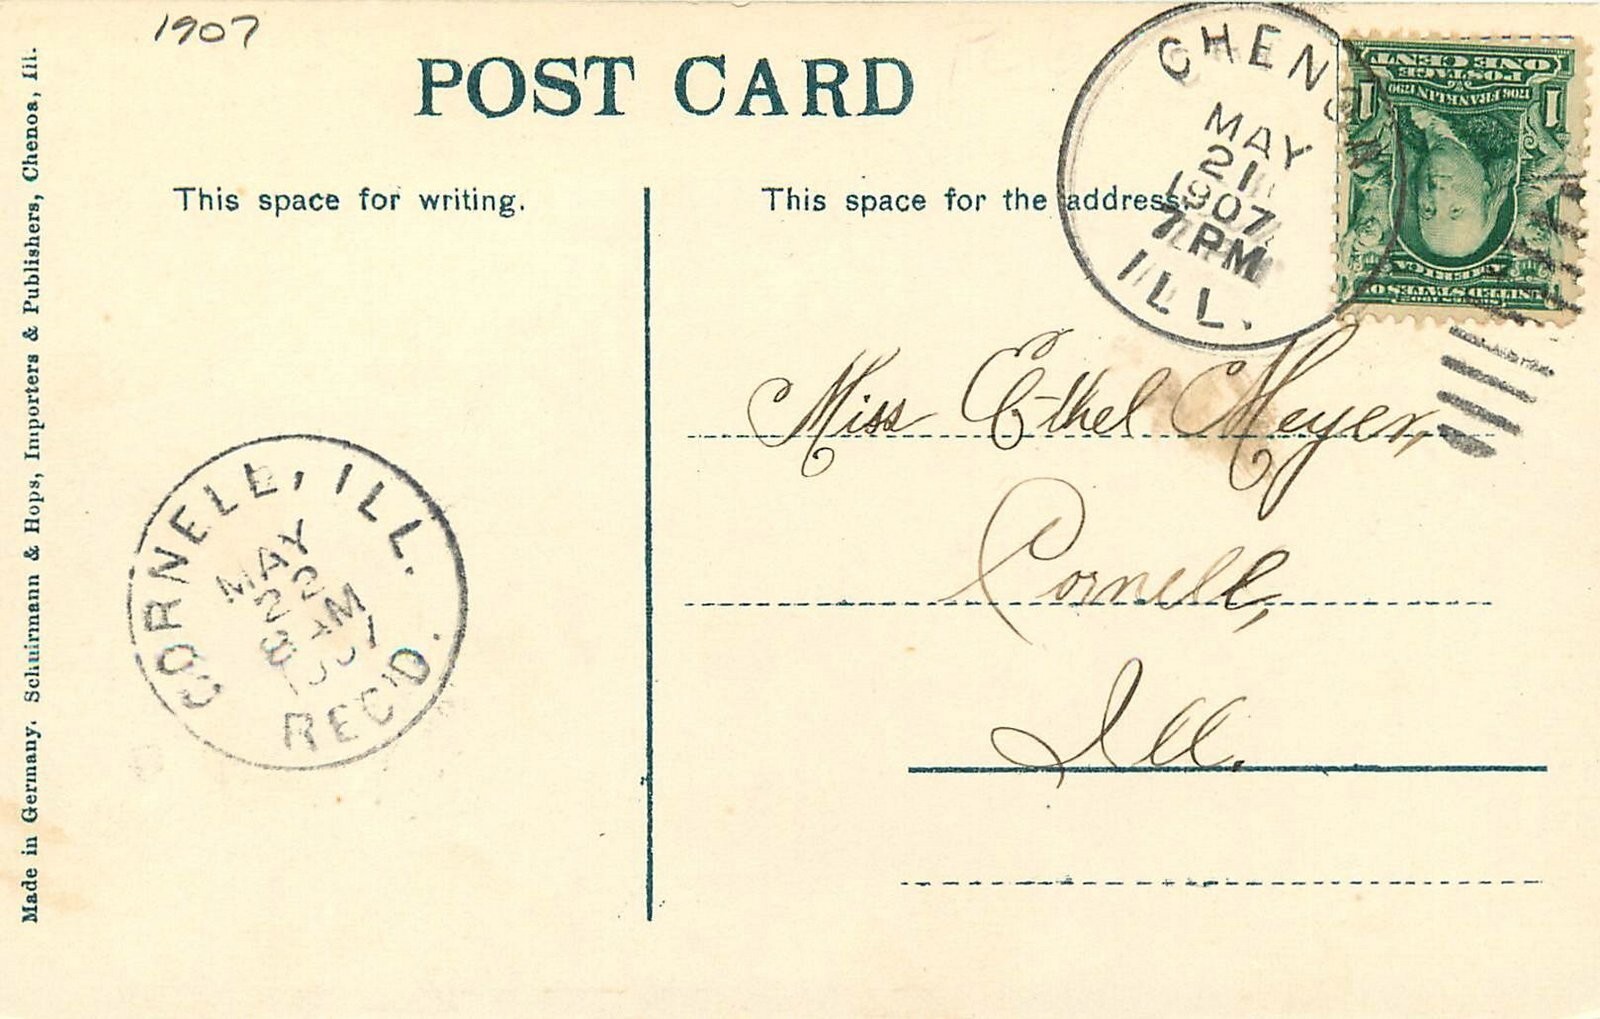 1907
POST CARD
This space for writing.
This space for the address.
CHENOA
MAY
21
1907
7 PM
ILL.
ONE CENT
POSTAGE
1706 FRANKLIN 1790
1 1
AMERICA
UNITED STATES OF
Miss Ethel Meyer,
Cornell,
Ill.
CORNELL, ILL.
MAY
22
8 AM
07
REC'D.
Made in Germany. Schuirmann & Hops, Importers & Publishers, Chenoa, Ill.